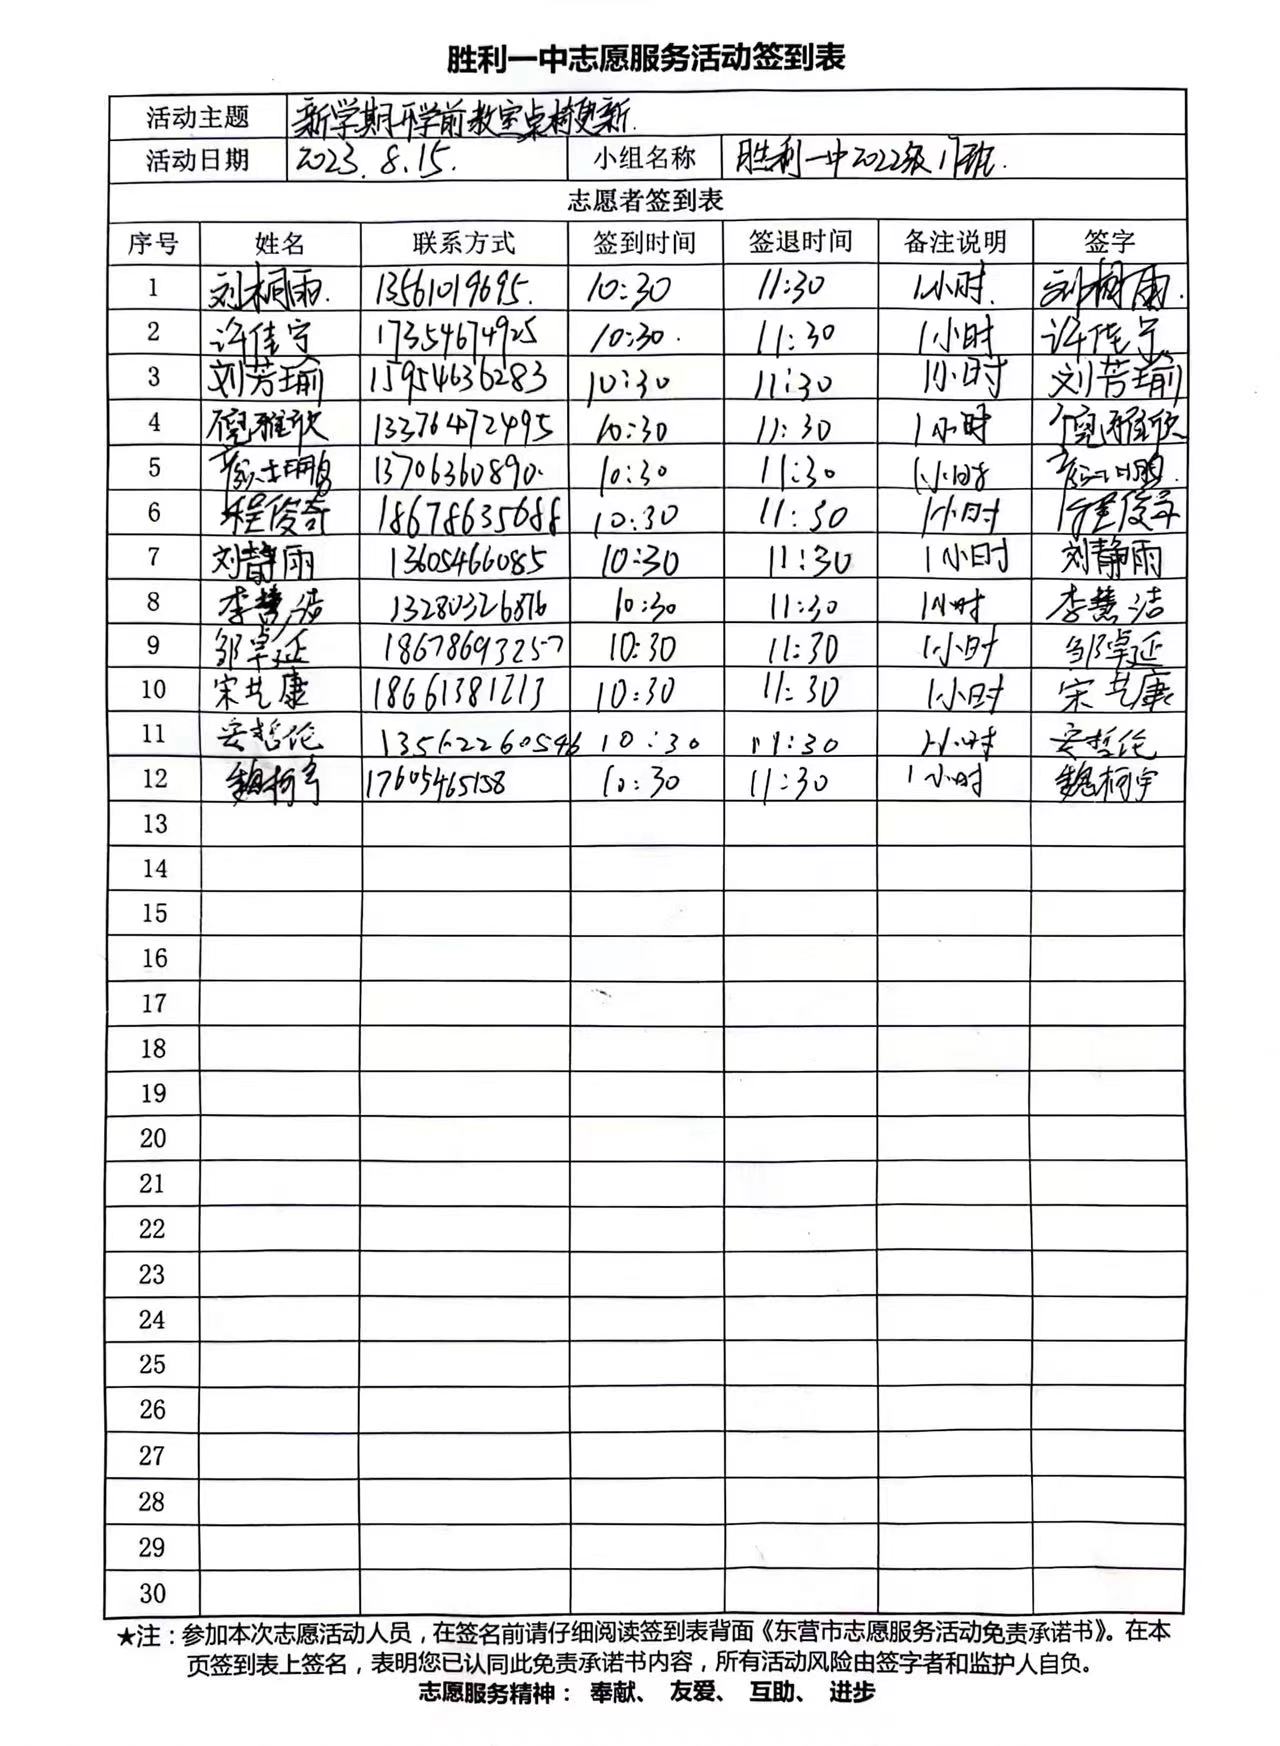 胜利一中志愿服务活动签到表
活动主题 新学期开学前教室桌椅更新.
活动日期 2023.8.15. 小组名称 胜利一中2022级17班.
志愿者签到表
序号 姓名 联系方式 签到时间 签退时间 备注说明 签字
1 刘桐雨. 13561019695. 10:30 11:30 1小时. 刘桐雨.
2 许佳宁 17354674925 10:30. 11:30 1小时 许佳宁
3 刘芳瑜 15954636283 10:30 11:30 1小时 刘芳瑜
4 倪雅欣 13376472495 10:30 11:30 1小时 倪雅欣
5 13706360890. 10:30 11:30 1小时
6 程俊奇 18678635688 10:30 11:30 1小时 程俊奇
7 刘静雨 13605466085 10:30 11:30 1小时 刘静雨
8 李慧洁 13280326876 10:30 11:30 1小时 李慧洁
9 邹卓延 18678693257 10:30 11:30 1小时 邹卓延
10 宋艺康 18661381213 10:30 11:30 1小时 宋艺康
11 安哲伦 13562260546 10:30 11:30 1小时 安哲伦
12 魏柯宇 17605465158 10:30 11:30 1小时 魏柯宇
13
14
15
16
17
18
19
20
21
22
23
24
25
26
27
28
29
30
★注：参加本次志愿活动人员，在签名前请仔细阅读签到表背面《东营市志愿服务活动免责承诺书》。在本
页签到表上签名，表明您已认同此免责承诺书内容，所有活动风险由签字者和监护人自负。
志愿服务精神： 奉献、 友爱、 互助、 进步